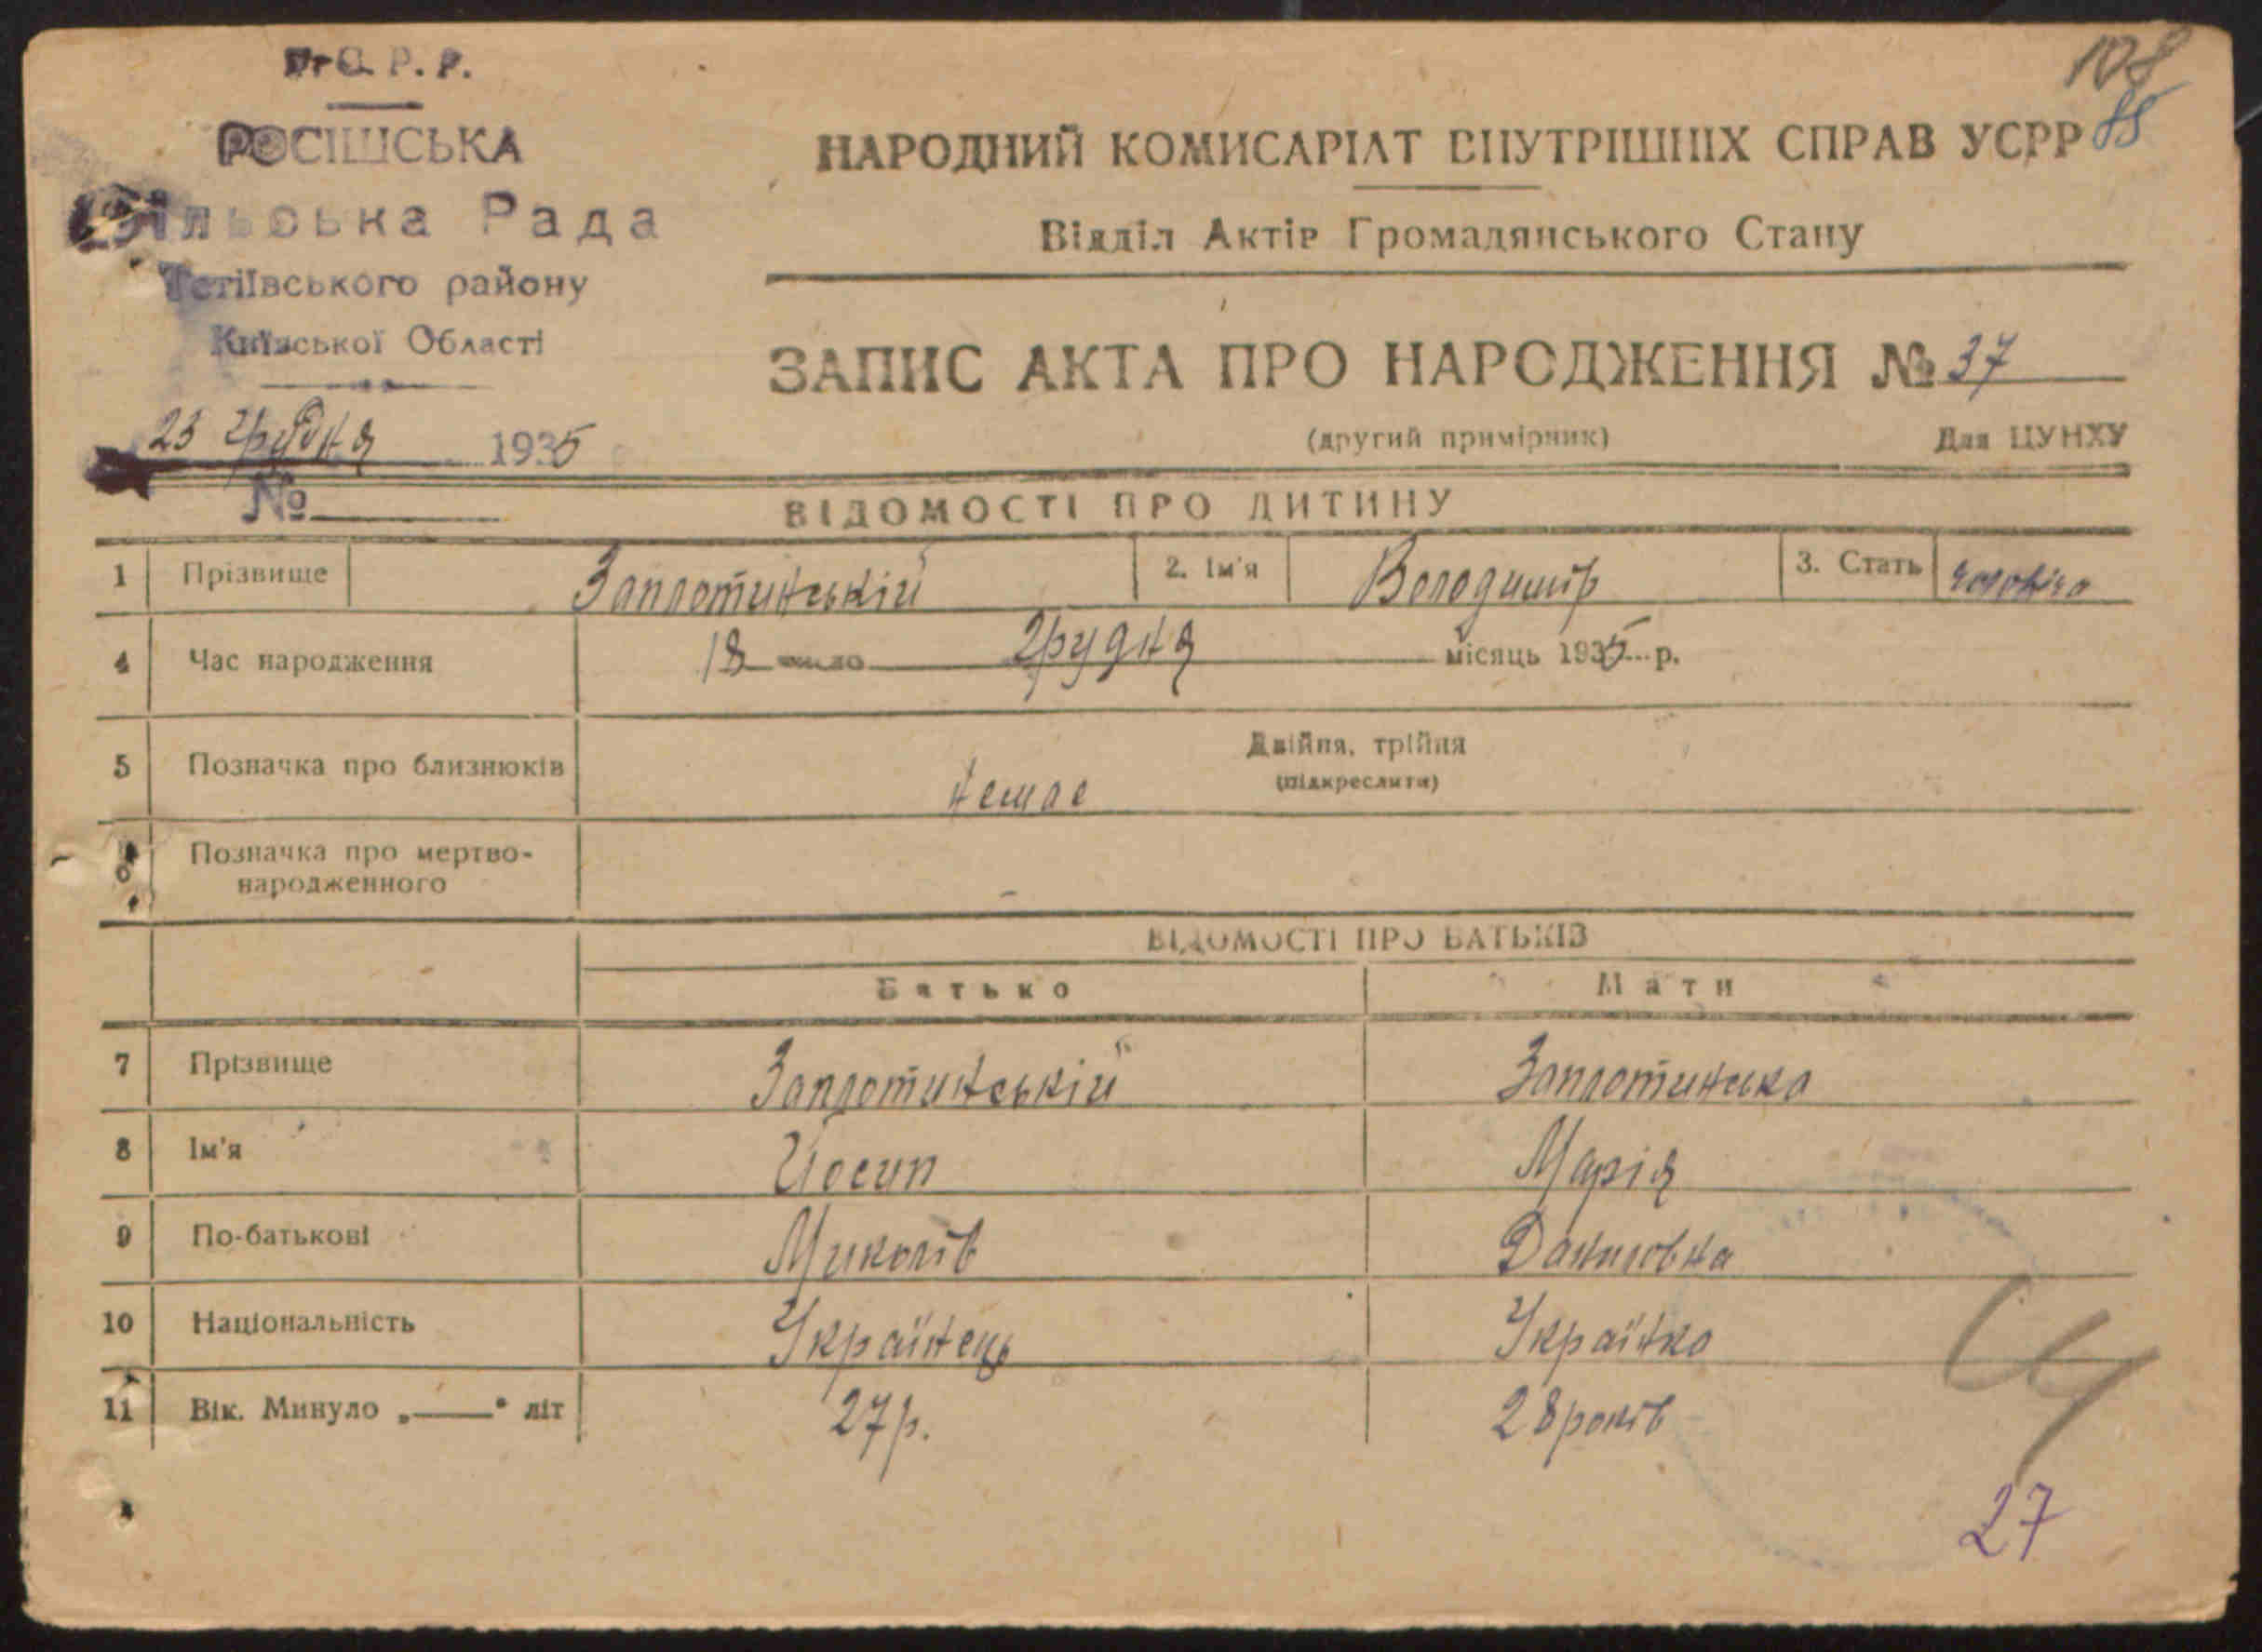 У.С.Р.Р.
РОСІШСЬКА
Сільська Рада
Тетіївського району
Київської Області
23 грудня 1935
№
108
85
НАРОДНИЙ КОМИСАРІЯТ ВНУТРІШНІХ СПРАВ УСРР
Відділ Актів Громадянського Стану
ЗАПИС АКТА ПРО НАРОДЖЕННЯ № 37
(другий примірник) Для ЦУНХУ
ВІДОМОСТІ ПРО ДИТИНУ
1 Прізвище Заплотинській 2. Ім'я Володимір 3. Стать
4 Час народження 18 число грудня місяць 1935 р.
5 Позначка про близнюків немає Двійня, трійня
(підкреслити)
6 Позначка про мертво-
народженного
ВІДОМОСТІ ПРО БАТЬКІВ
Батько Мати
7 Прізвище Заплотинській Заплотинська
8 Ім'я Йосип Марія
9 По-батькові Миколів Даниловна
10 Національність Українець Українка
11 Вік. Минуло „——" літ 27р. 28 років
27